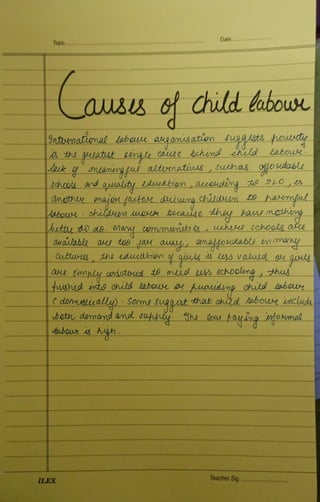 Topic
Date
Causes of child labour
International labour organisation suggests poverty
is the greatest single cause behind child labour.
lack of meaningful alternatives, such as affordable
schools and quality education, according to ILO, is
another major factors driving children to harmful
labour. children work because they have nothing
better to do. Many communities, where schools are
available are too far away, unaffordable in many
cultures, the education of girls is less valued or girls
are simply considered to need less schooling, thus
pushed into child labour or providing child labour
(domestically). Some suggest that child labour include
both demand and supply. The low paying informal
labour is high.
ILEX
Teacher Sig.